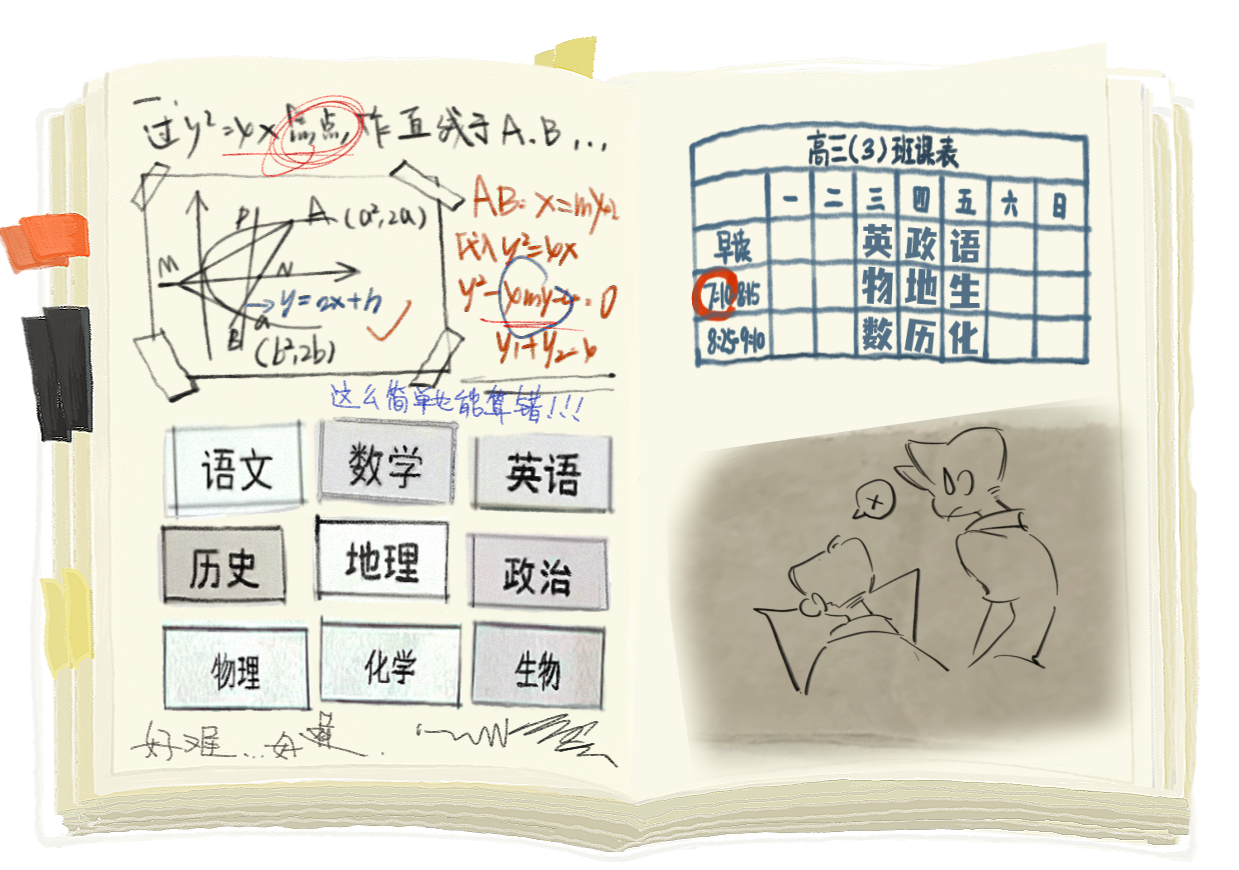 一.
过y²=4x焦点,作直线于A.B...
A(a²,2a)
P
M
N
y=2x+h
a
B
(b²,2b)
AB: x=my+2
代入y²=4x
y²-4my-4=0
y₁+y₂=4
这么简单也能算错!!!
语文 数学 英语
历史 地理 政治
物理 化学 生物
好难...
高三(3)班课表
一 二 三 四 五 六 日
早读 英 政 语
7:10 8:15 物 地 生
8:25-9:10 数 历 化
×